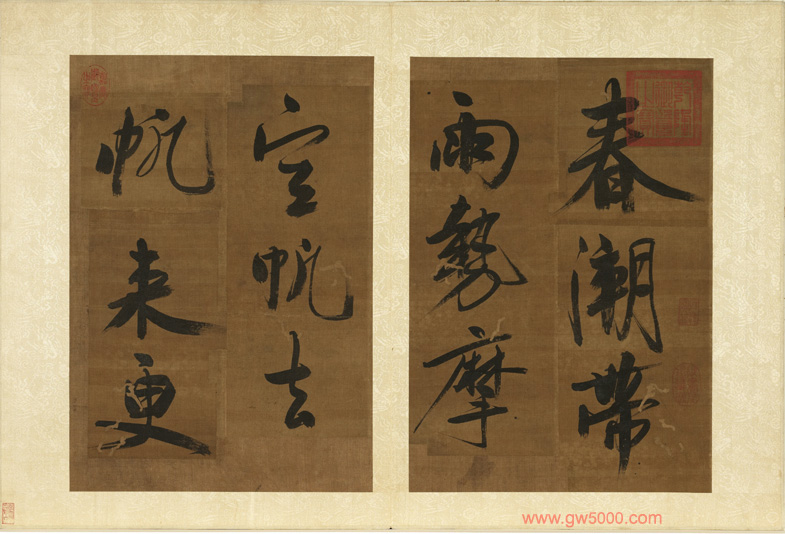 春潮帶
雨勢摩
空帆去
帆来更
www.gw5000.com